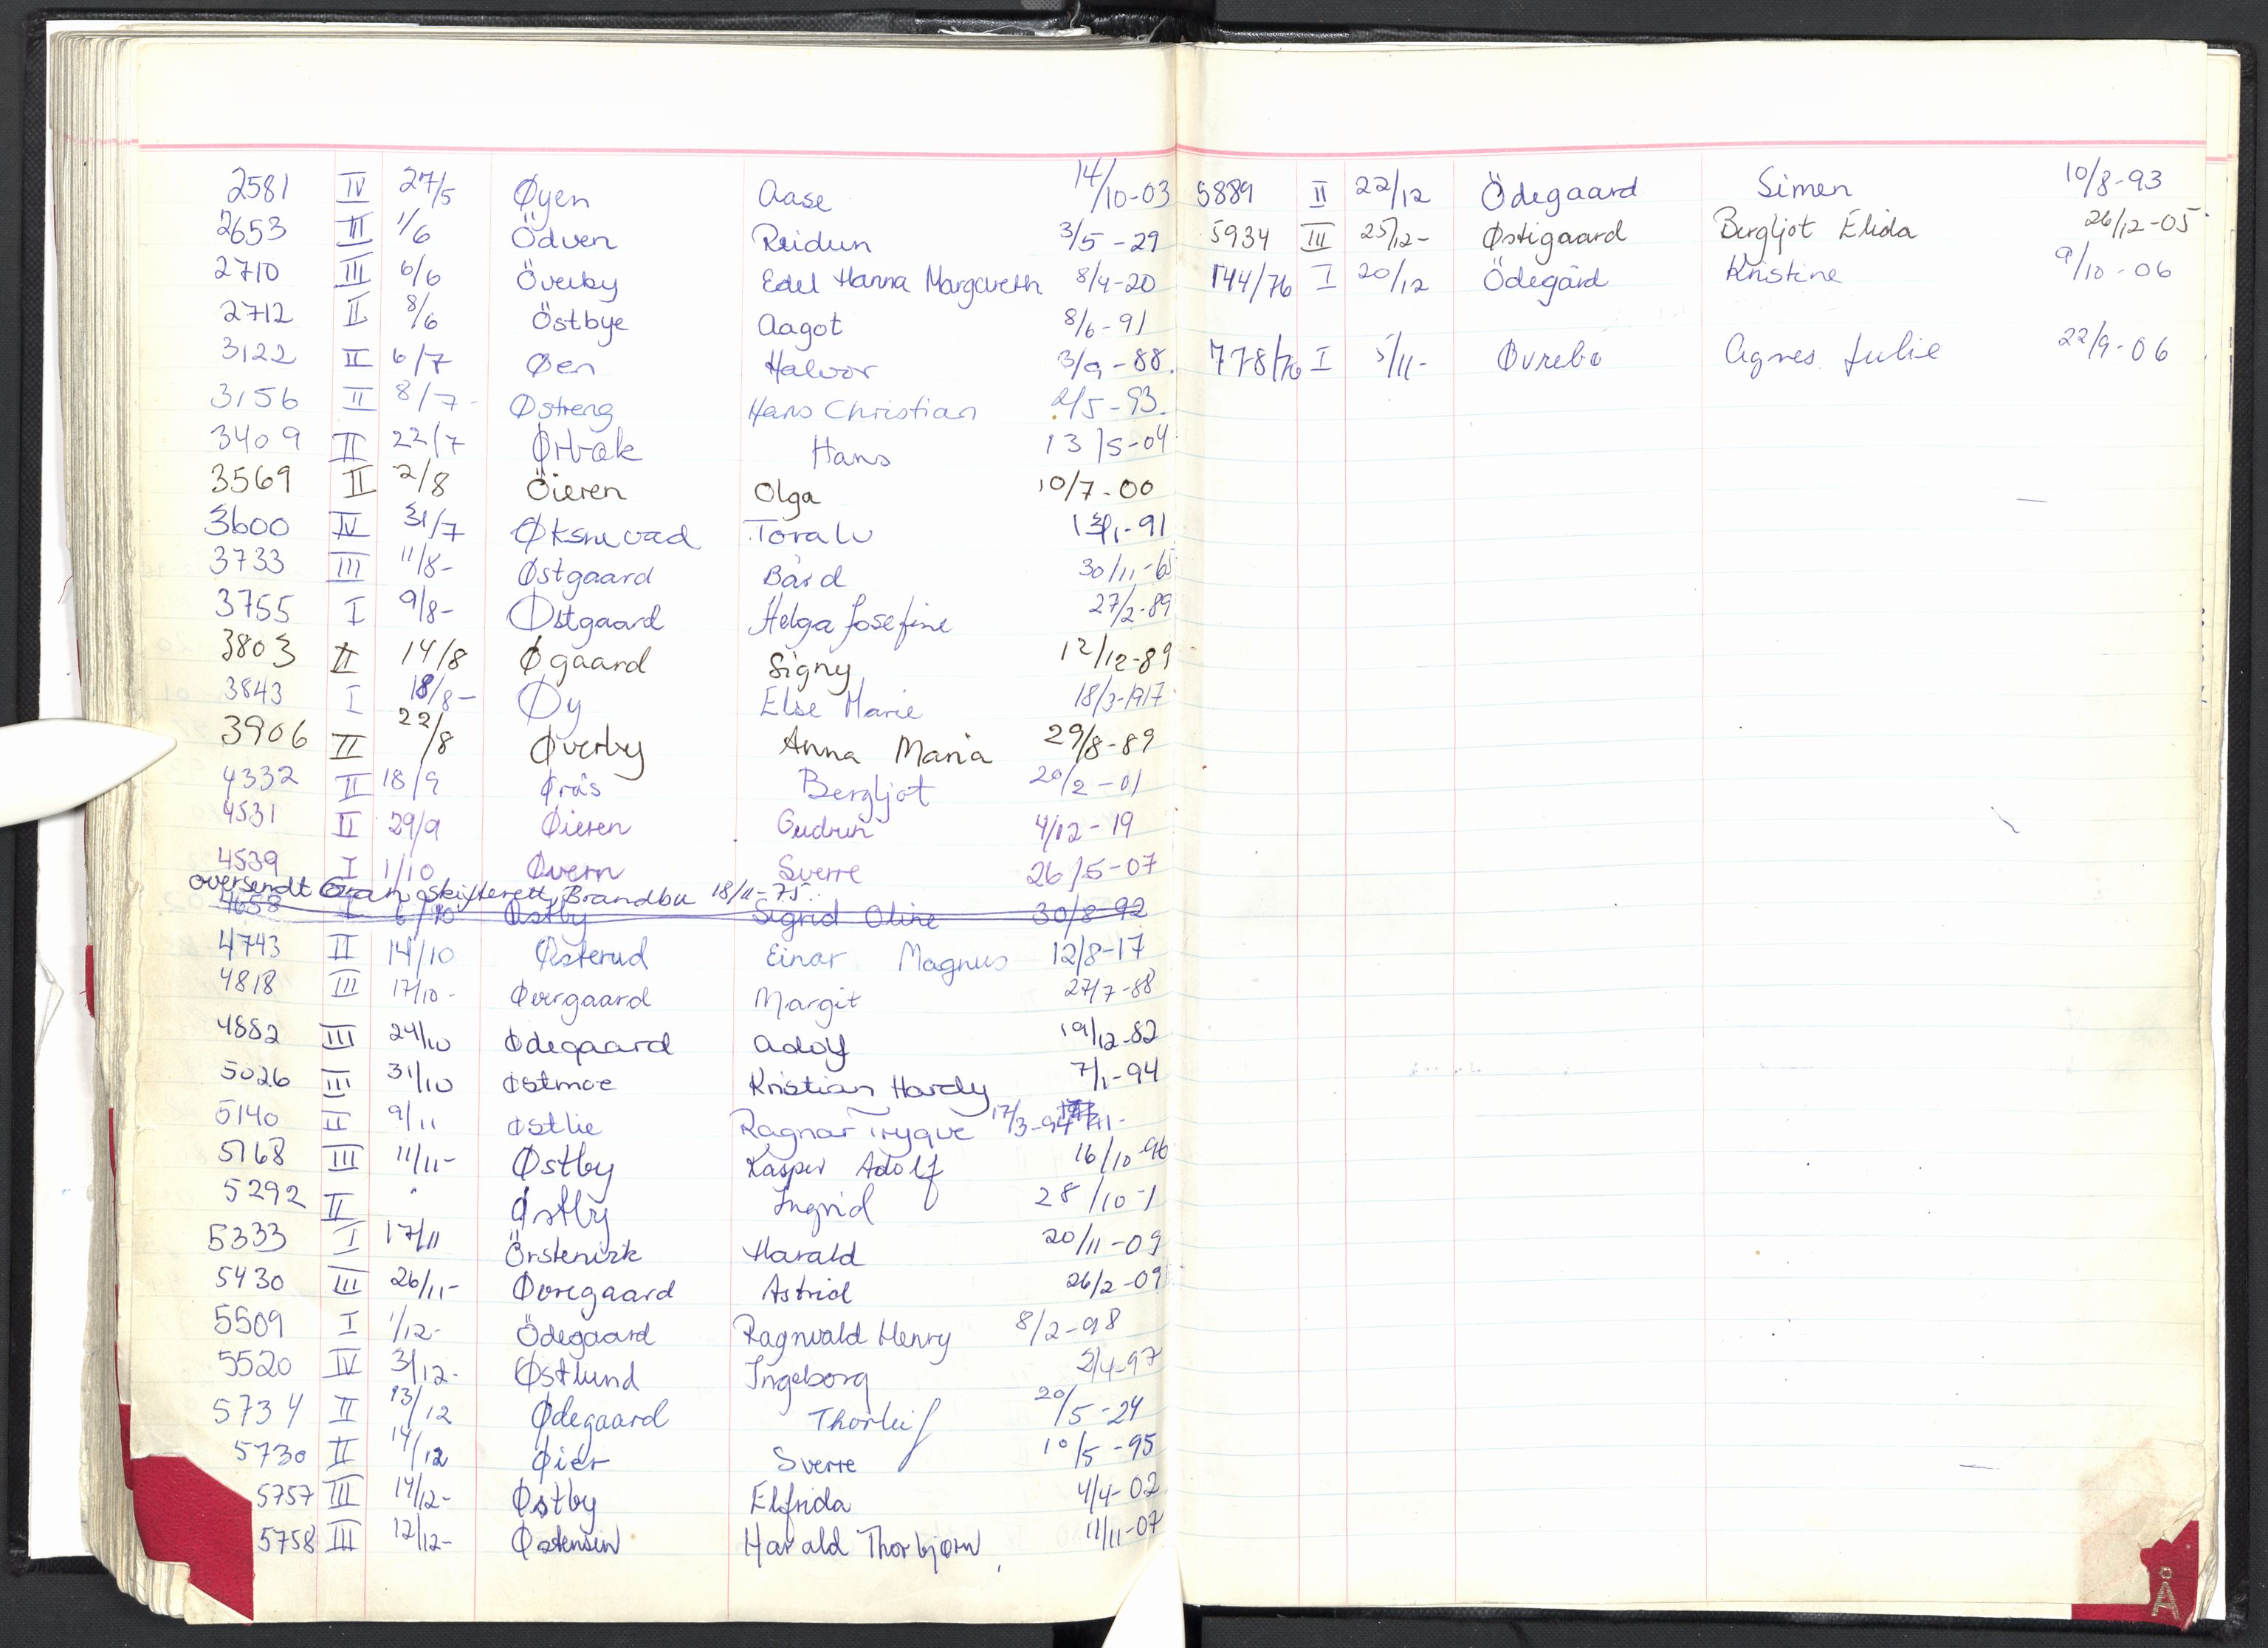 2581 IV 27/5 Øyen Aase 14/10-03
2653 III 1/6 Ödven Reidun 3/5-29
2710 III 6/6 Överby Edel Hanna Margareth 8/4-20
2712 II 8/6 Östbye Aagot 8/6-91
3122 II 6/7 Øen Halvor 3/9-88.
3156 II 8/7- Østreng Hans Christian 2/5-93.
3409 II 22/7 Ørbak Hans 13/5-04
3569 II 2/8 Öieren Olga 10/7-00
3600 IV 31/7 Øksnevad Toralv
3733 III 11/8- Østgaard Bård 30/11-65
3755 I 9/8- Østgaard Helga Josefine 27/2-89
3803 II 14/8 Øgaard Signy 12/12-89
3843 I 18/8- Øy Else Marie 18/3-1917
3906 II 22/8 Øverby Anna Maria 29/8-89
4332 II 18/9 Øraas Bergljot 20/2-01
4531 II 29/9 Øieren Gudrun 4/12-19
4539 I 1/10 Øvern Sverre 26/5-07
oversendt Gran skifterett, Brandbu 18/11-75.
4658 I 6/10 Østby Sigrid Oline 30/8-92
4743 II 14/10 Østerud Einar Magnus 12/8-17
4818 III 17/10- Øvergaard Margit 27/7-88
4882 III 24/10 Ødegaard Adolf 19/12-82
5026 III 31/10 Østmoe Kristian Hardy 7/1-94
5140 II 9/11 Østlie Ragnar Trygve 17/3-94
5168 III 11/11- Østby Kasper Adolf 16/10-96
5292 II " Østby Ingrid 28/10-1
5333 I 17/11 Örstenvik Harald 20/11-09
5430 III 26/11- Øvregaard Astrid 26/2-09
5509 I 1/12- Ödegaard Ragnvald Henry 8/2-98
5520 IV 3/12- Østlund Ingeborg 2/4-97
5734 II 13/12 Ødegaard Thorleif 20/5-24
5730 II 14/12 Øier Sverre 10/5-95
5757 III 14/12- Østby Elfrida 4/4-02
5758 III 12/12- Østensen Harald Thorbjørn 11/11-07
5889 II 22/12 Ödegaard Simen 10/8-93
5934 III 25/12- Østigaard Bergljot Elida 26/12-05
144/76 I 20/12 Ödegård Kristine 9/10-06
778/76 I 5/11- Øvrebø Agnes Julie 22/9-06
Å